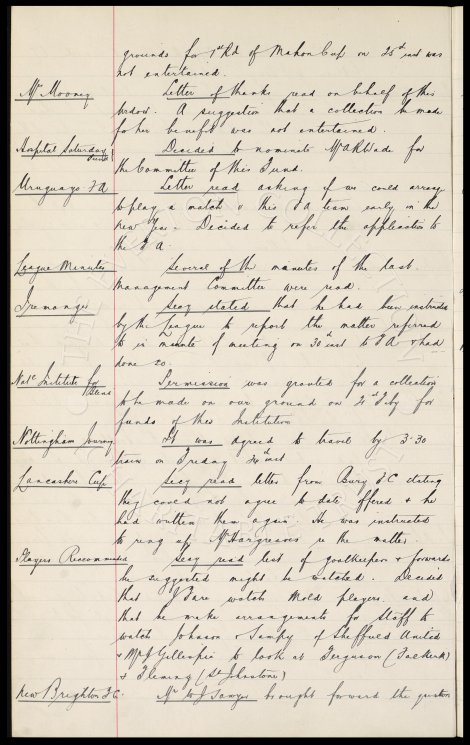 grounds for 1st Rd of Mahon Cup on 25d inst was
not entertained.
Mr Mooney Letter of thanks read on behalf of this
widow. A suggestion that a collection be made
for her benefit was not entertained.
Hospital Saturday Fund Decided to nominate Mr A R Wade for
the Committee of this Fund.
Uruguayo F A Letter read asking if we could arrange
to play a match v this F A team early in the
new Year. Decided to refer the application to
the F A.
League Minutes Several of the minutes of the last
Management Committee were read.
Iremonger Secy stated that he had been instructed
by the League to report the matter referred
to in minute of meeting on 30d inst to F A & had
done so.
Natl Institute for Blind Permission was granted for a collection
to be made on our ground on 21st Feby for
funds of this Institution
Nottingham Journey It was agreed to travel by 3.30
train on Friday inst
Lancashire Cup Secy read letter from Bury F C stating
they could not agree to date offered & he
had written them again. He was instructed
to ring up Mr Hargreaves re the matter.
Players Recommended Secy read list of goalkeepers & forwards
he suggested might be watched. Decided
that watch Mold players and
that he make arrangements for staff to
watch Johnson & of Sheffield United
& Mr J Gillespie to look at Ferguson (Falkirk)
& Fleming (St Johnstone)
New Brighton F C. Mr W J Sawyer brought forward the question